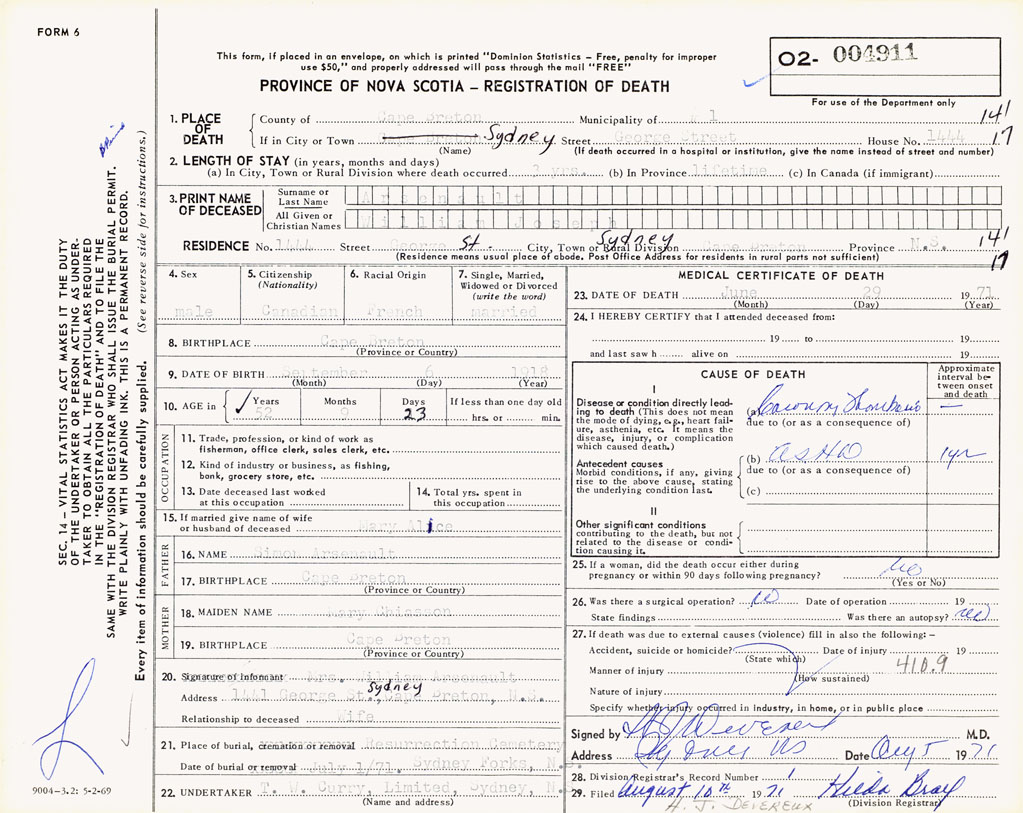 FORM 6
This form, if placed in an envelope, on which is printed "Dominion Statistics – Free, penalty for improper
use $50," and properly addressed will pass through the mail "FREE"
PROVINCE OF NOVA SCOTIA – REGISTRATION OF DEATH
02- 004911
For use of the Department only
1. PLACE OF DEATH
County of Cape Breton Municipality of 141
If in City or Town Cape Breton Sydney Street George Street House No. 1444 17
(Name) (If death occurred in a hospital or institution, give the name instead of street and number)
2. LENGTH OF STAY (in years, months and days)
(a) In City, Town or Rural Division where death occurred 3 yrs. (b) In Province lifetime (c) In Canada (if immigrant)
3. PRINT NAME OF DECEASED
Surname or Last Name Arsenault
All Given or Christian Names William Joseph
RESIDENCE No. 1444 Street George St. City, Town or Rural Division Sydney Cape Breton Province N.S. 141
(Residence means usual place of abode. Post Office Address for residents in rural parts not sufficient) 17
4. Sex
male
5. Citizenship (Nationality)
Canadian
6. Racial Origin
French
7. Single, Married, Widowed or Divorced (write the word)
married
8. BIRTHPLACE Cape Breton
(Province or Country)
9. DATE OF BIRTH September 6 1918
(Month) (Day) (Year)
10. AGE in Years Months Days If less than one day old
52 9 23 hrs. or min.
OCCUPATION
11. Trade, profession, or kind of work as
fisherman, office clerk, sales clerk, etc.
12. Kind of industry or business, as fishing,
bank, grocery store, etc.
13. Date deceased last worked
at this occupation
14. Total yrs. spent in
this occupation
15. If married give name of wife
or husband of deceased Mary Alice
FATHER
16. NAME Simon Arsenault
17. BIRTHPLACE Cape Breton
(Province or Country)
MOTHER
18. MAIDEN NAME Mary Chiasson
19. BIRTHPLACE Cape Breton
(Province or Country)
20. Signature of informant Mrs. William Arsenault
Address 1441 George St., Sydney Cape Breton, N.S.
Relationship to deceased Wife
21. Place of burial, cremation or removal Resurrection Cemetery
Date of burial or removal July 1/71. Sydney Forks, N.S.
22. UNDERTAKER T. W. Curry, Limited, Sydney, N.S.
(Name and address)
MEDICAL CERTIFICATE OF DEATH
23. DATE OF DEATH June 29 1971
(Month) (Day) (Year)
24. I HEREBY CERTIFY that I attended deceased from:
19 to 19
and last saw h alive on 19
CAUSE OF DEATH
Approximate interval between onset and death
I
Disease or condition directly leading to death (This does not mean
the mode of dying, e.g., heart failure, asthenia, etc. It means the
disease, injury, or complication
which caused death.)
(a) Coronary Thrombosis —
due to (or as a consequence of)
Antecedent causes
Morbid conditions, if any, giving
rise to the above cause, stating
the underlying condition last.
(b) ASHD 1 yr
due to (or as a consequence of)
(c)
II
Other significant conditions
contributing to the death, but not
related to the disease or condition causing it.
25. If a woman, did the death occur either during
pregnancy or within 90 days following pregnancy? No
(Yes or No)
26. Was there a surgical operation? no Date of operation 19
State findings Was there an autopsy? no
27. If death was due to external causes (violence) fill in also the following: –
Accident, suicide or homicide? Date of injury 19
(State which)
Manner of injury 410.9
(How sustained)
Nature of injury
Specify whether injury occurred in industry, in home, or in public place
Signed by H J Devereux M.D.
Address Sydney NS Date Aug 5 1971
28. Division Registrar's Record Number 1
29. Filed August 10th 1971 Hilda Bray
(Division Registrar)
H. J. DEVEREUX
SEC. 14 – VITAL STATISTICS ACT MAKES IT THE DUTY
OF THE UNDERTAKER OR PERSON ACTING AS UNDERTAKER TO OBTAIN ALL THE PARTICULARS REQUIRED
IN THE "REGISTRATION OF DEATH" AND TO FILE THE
SAME WITH THE DIVISION REGISTRAR WHO SHALL ISSUE THE BURIAL PERMIT.
WRITE PLAINLY WITH UNFADING INK. THIS IS A PERMANENT RECORD.
Every item of information should be carefully supplied. (See reverse side for instructions.)
9004–3.2: 5-2-69